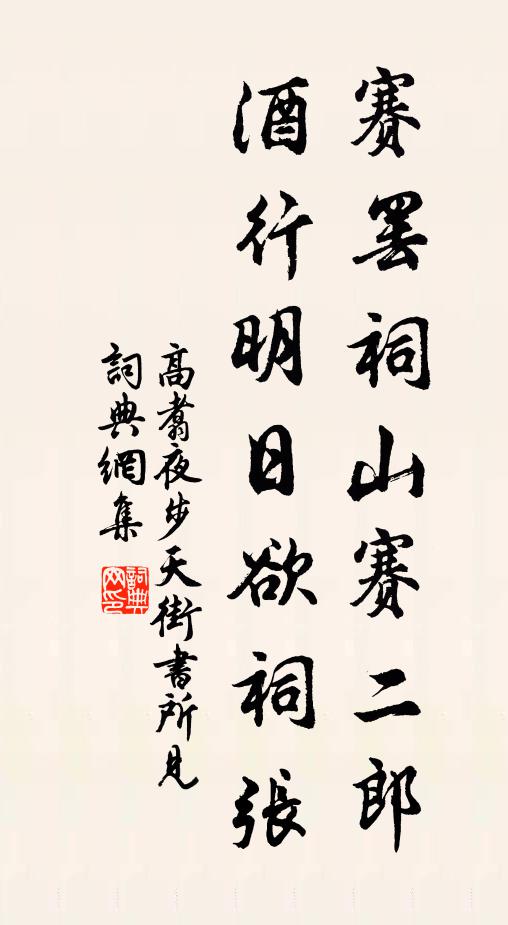 賽罷祠山賽二郎
酒行明日欲祠張
高翥夜步天街書所見
詞典網集
詞典
网印